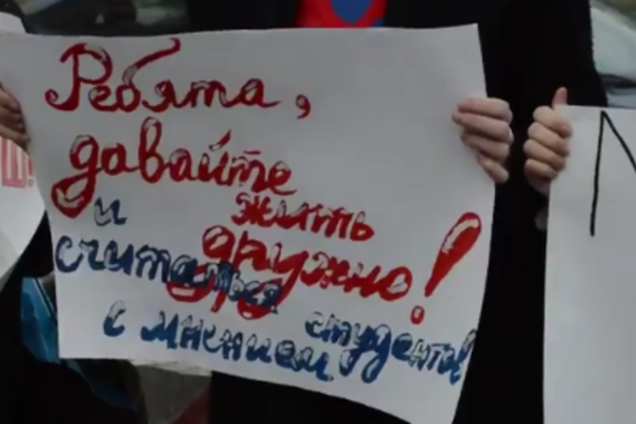 Ребята,
давайте
жить
дружно!
и
считаться
с мнением
студентов!